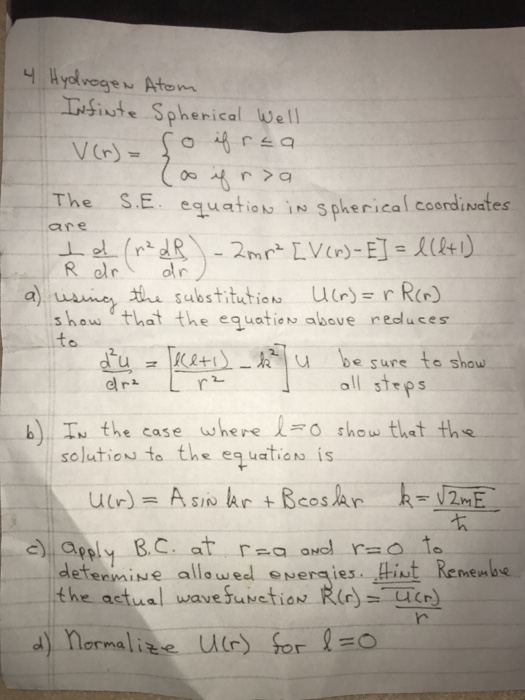 4 Hydrogen Atom
Infinte Spherical Well
V(r) = { 0 if r ≤ a
∞ if r > a
The S.E. equation in spherical coordinates
are
1/R d/dr (r² dR/dr) - 2mr² [V(r)-E] = l(l+1)
a) using the substitution U(r) = r R(r)
show that the equation above reduces
to
d²u/dr² = [l(l+1)/r² - k²] u be sure to show
all steps
b) In the case where l=0 show that the
solution to the equation is
U(r) = A sin kr + B cos kr k = √2mE/ħ
c) apply B.C. at r=a and r=0 to
determine allowed energies. Hint Remembe
the actual wavefunction R(r) = U(r)/r
d) Normalize U(r) for l=0